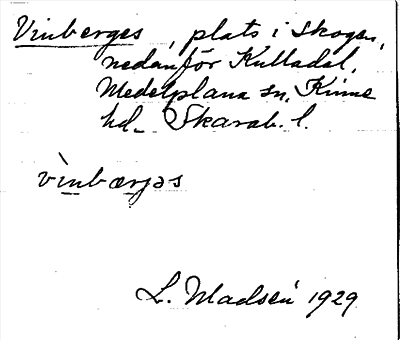 Vinberges, plats i skogen,
nedanför Kulladal,
Medelplana sn, Kinne
hd. Skarab. l.
vìnbærjəs
L. Madsén 1929